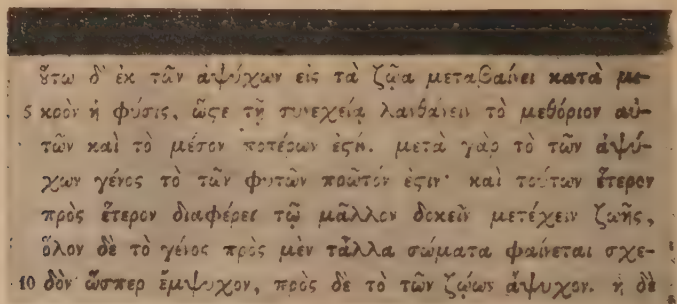 ȣ̔τω δ' ἐκ τῶν ἀψύχων εἰς τὰ ζῷα μεταβαίνει κατὰ μι-
5 κρὸν ἡ φύσις, ὥϛε τῇ συνεχείᾳ λανθάνειν τὸ μεθόριον αὐ-
τῶν καὶ τὸ μέσον ποτέρων ἐϛίν. μετὰ γὰρ τὸ τῶν ἀψύ-
χων γένος τὸ τῶν φυτῶν πρῶτόν ἐϛιν· καὶ τούτων ἕτερον
πρὸς ἕτερον διαφέρει τῷ μᾶλλον δοκεῖν μετέχειν ζωῆς,
ὅλον δὲ τὸ γένος πρὸς μὲν τἆλλα σώματα φαίνεται σχε-
10 δὸν ὥσπερ ἔμψυχον, πρὸς δὲ τὸ τῶν ζῴων ἄψυχον. ἡ δὲ